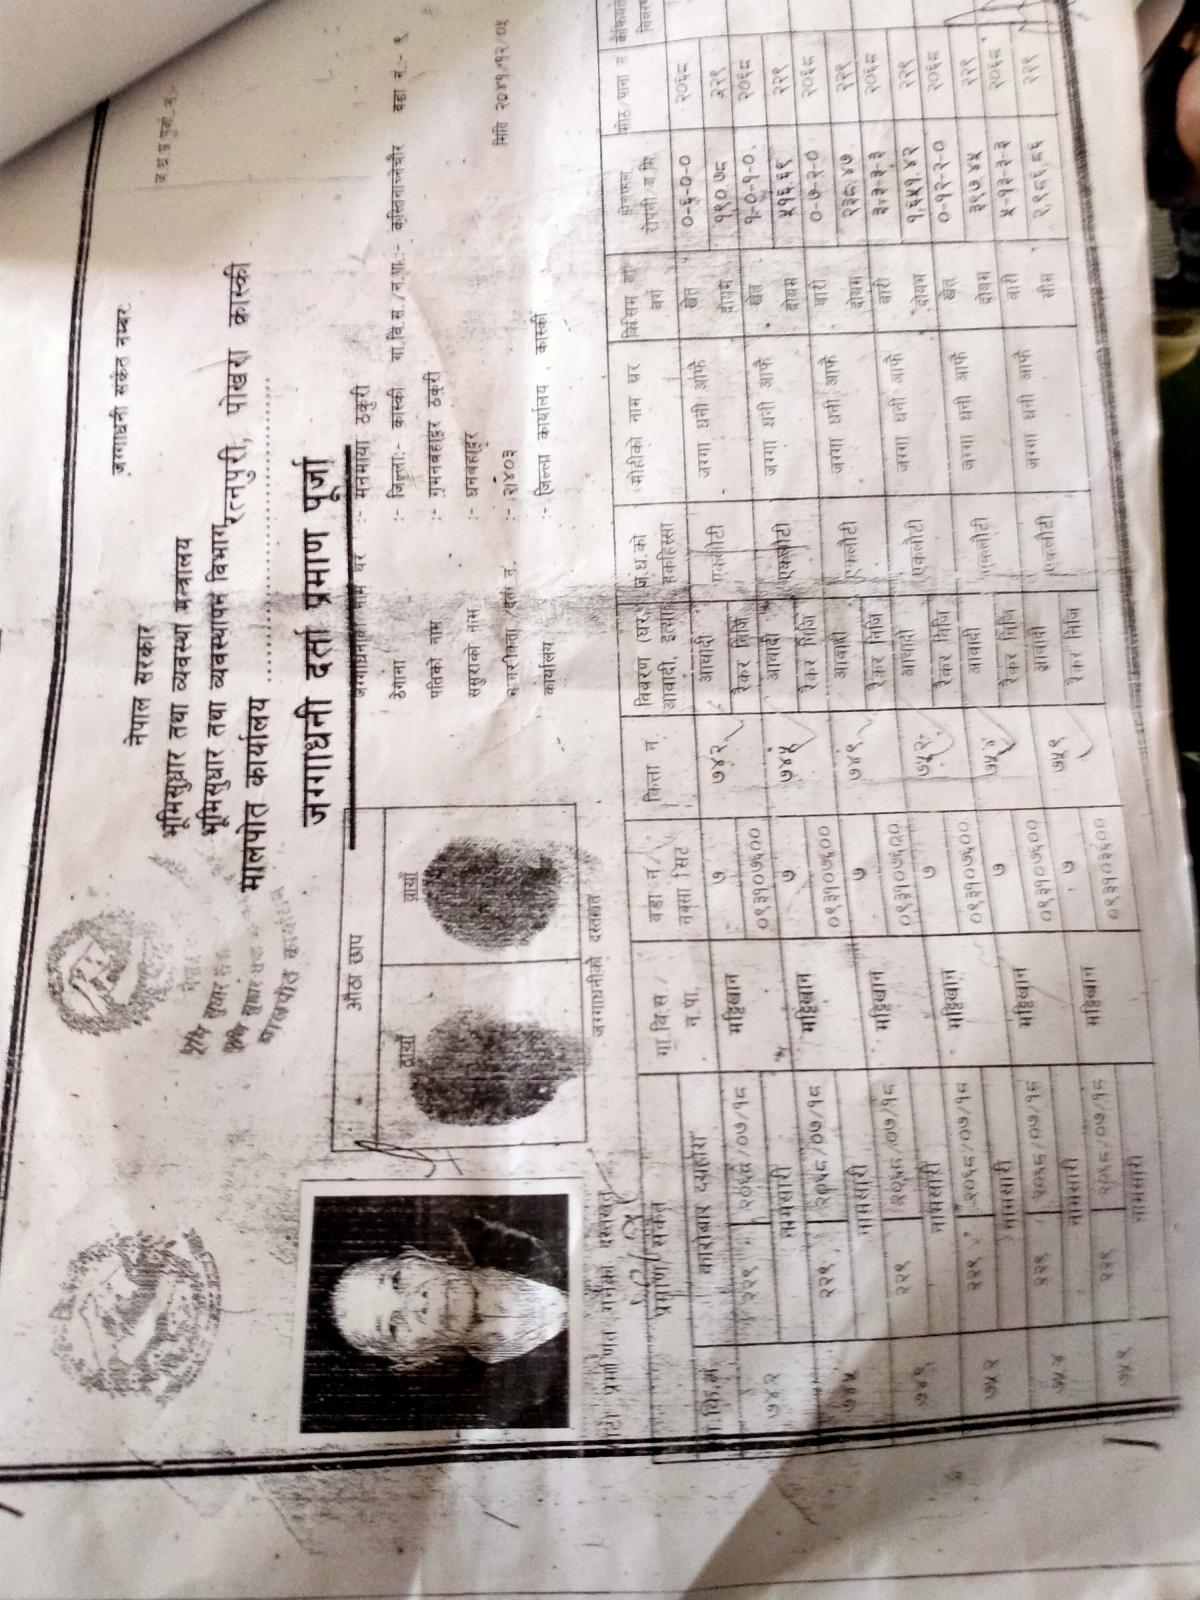 जग्गाधनी संकेत नम्बर:
नेपाल सरकार
भूमिसुधार तथा व्यवस्था मन्त्रालय
भूमिसुधार तथा व्यवस्थापन विभाग
मालपोत कार्यालय रत्नपुरी, पोखरा कास्की
जग्गाधनी दर्ता प्रमाण पूर्जा
मालपोत कार्यालय
औठा छाप
दायाँ बायाँ
जग्गाधनीको दस्तखत
नाम थर :- मनमाया ठकुरी
ठेगाना :- जिल्ला:- कास्की गा.वि.स./न.पा.:- वडा नं.:- ९
पतिको नाम :- गुमनबहादुर ठकुरी
ससुराको नाम :- धनबहादुर
:- २।४०३ मिति २०४१/१२/०५
कार्यालय :- जिल्ला कार्यालय , कास्की
फोटो प्रमाणित गर्नेको दस्तखत
गा.वि.स./ न.पा. वडा नं./ नक्सा सिट कित्ता नं. विवरण (घर, आवादी, इत्यादि) ज.ध.को हकहिस्सा मोहीको नाम थर किसिम वर्ग क्षेत्रफल रोपनी/व.मि. मोठ/पाना नं कैफियत विवरण
७४२ २२९ २०६८/०७/१८ मझ्ठिखान ७ ७४२ आवादी एकलौटी जग्गा धनी आफै खेत ०-६-०-० २०६८
नामसारी ०९३१०७६०० रैकर निजि दोयम १९०.७८ २२९
७४५ २२९ २०६८/०७/१८ मझ्ठिखान ७ ७४५ आवादी एकलौटी जग्गा धनी आफै खेत १-०-१-० २०६८
नामसारी ०९३१०७६०० रैकर निजि दोयम ५१६.६९ २२९
७४९ २२९ २०६८/०७/१८ मझ्ठिखान ७ ७४९ आवादी एकलौटी जग्गा धनी आफै बारी ०-७-२-० २०६८
नामसारी ०९३१०७६०० रैकर निजि दोयम २३८.४७ २२९
७५२ २२९ २०६८/०७/१८ मझ्ठिखान ७ ७५२ आवादी एकलौटी जग्गा धनी आफै बारी ३-३-३-३ २०६८
नामसारी ०९३१०७६०० रैकर निजि दोयम १,६५१.४२ २२९
७५४ २२९ २०६८/०७/१८ मझ्ठिखान ७ ७५४ आवादी एकलौटी जग्गा धनी आफै खेत ०-१२-२-० २०६८
नामसारी ०९३१०७६०० रैकर निजि दोयम ३९७.४५ २२९
७५९ २२९ २०६८/०७/१८ मझ्ठिखान ७ ७५९ आवादी एकलौटी जग्गा धनी आफै बारी ५-१३-३-३ २०६८
नामसारी रैकर निजि सीम २,९८६.८६ २२९